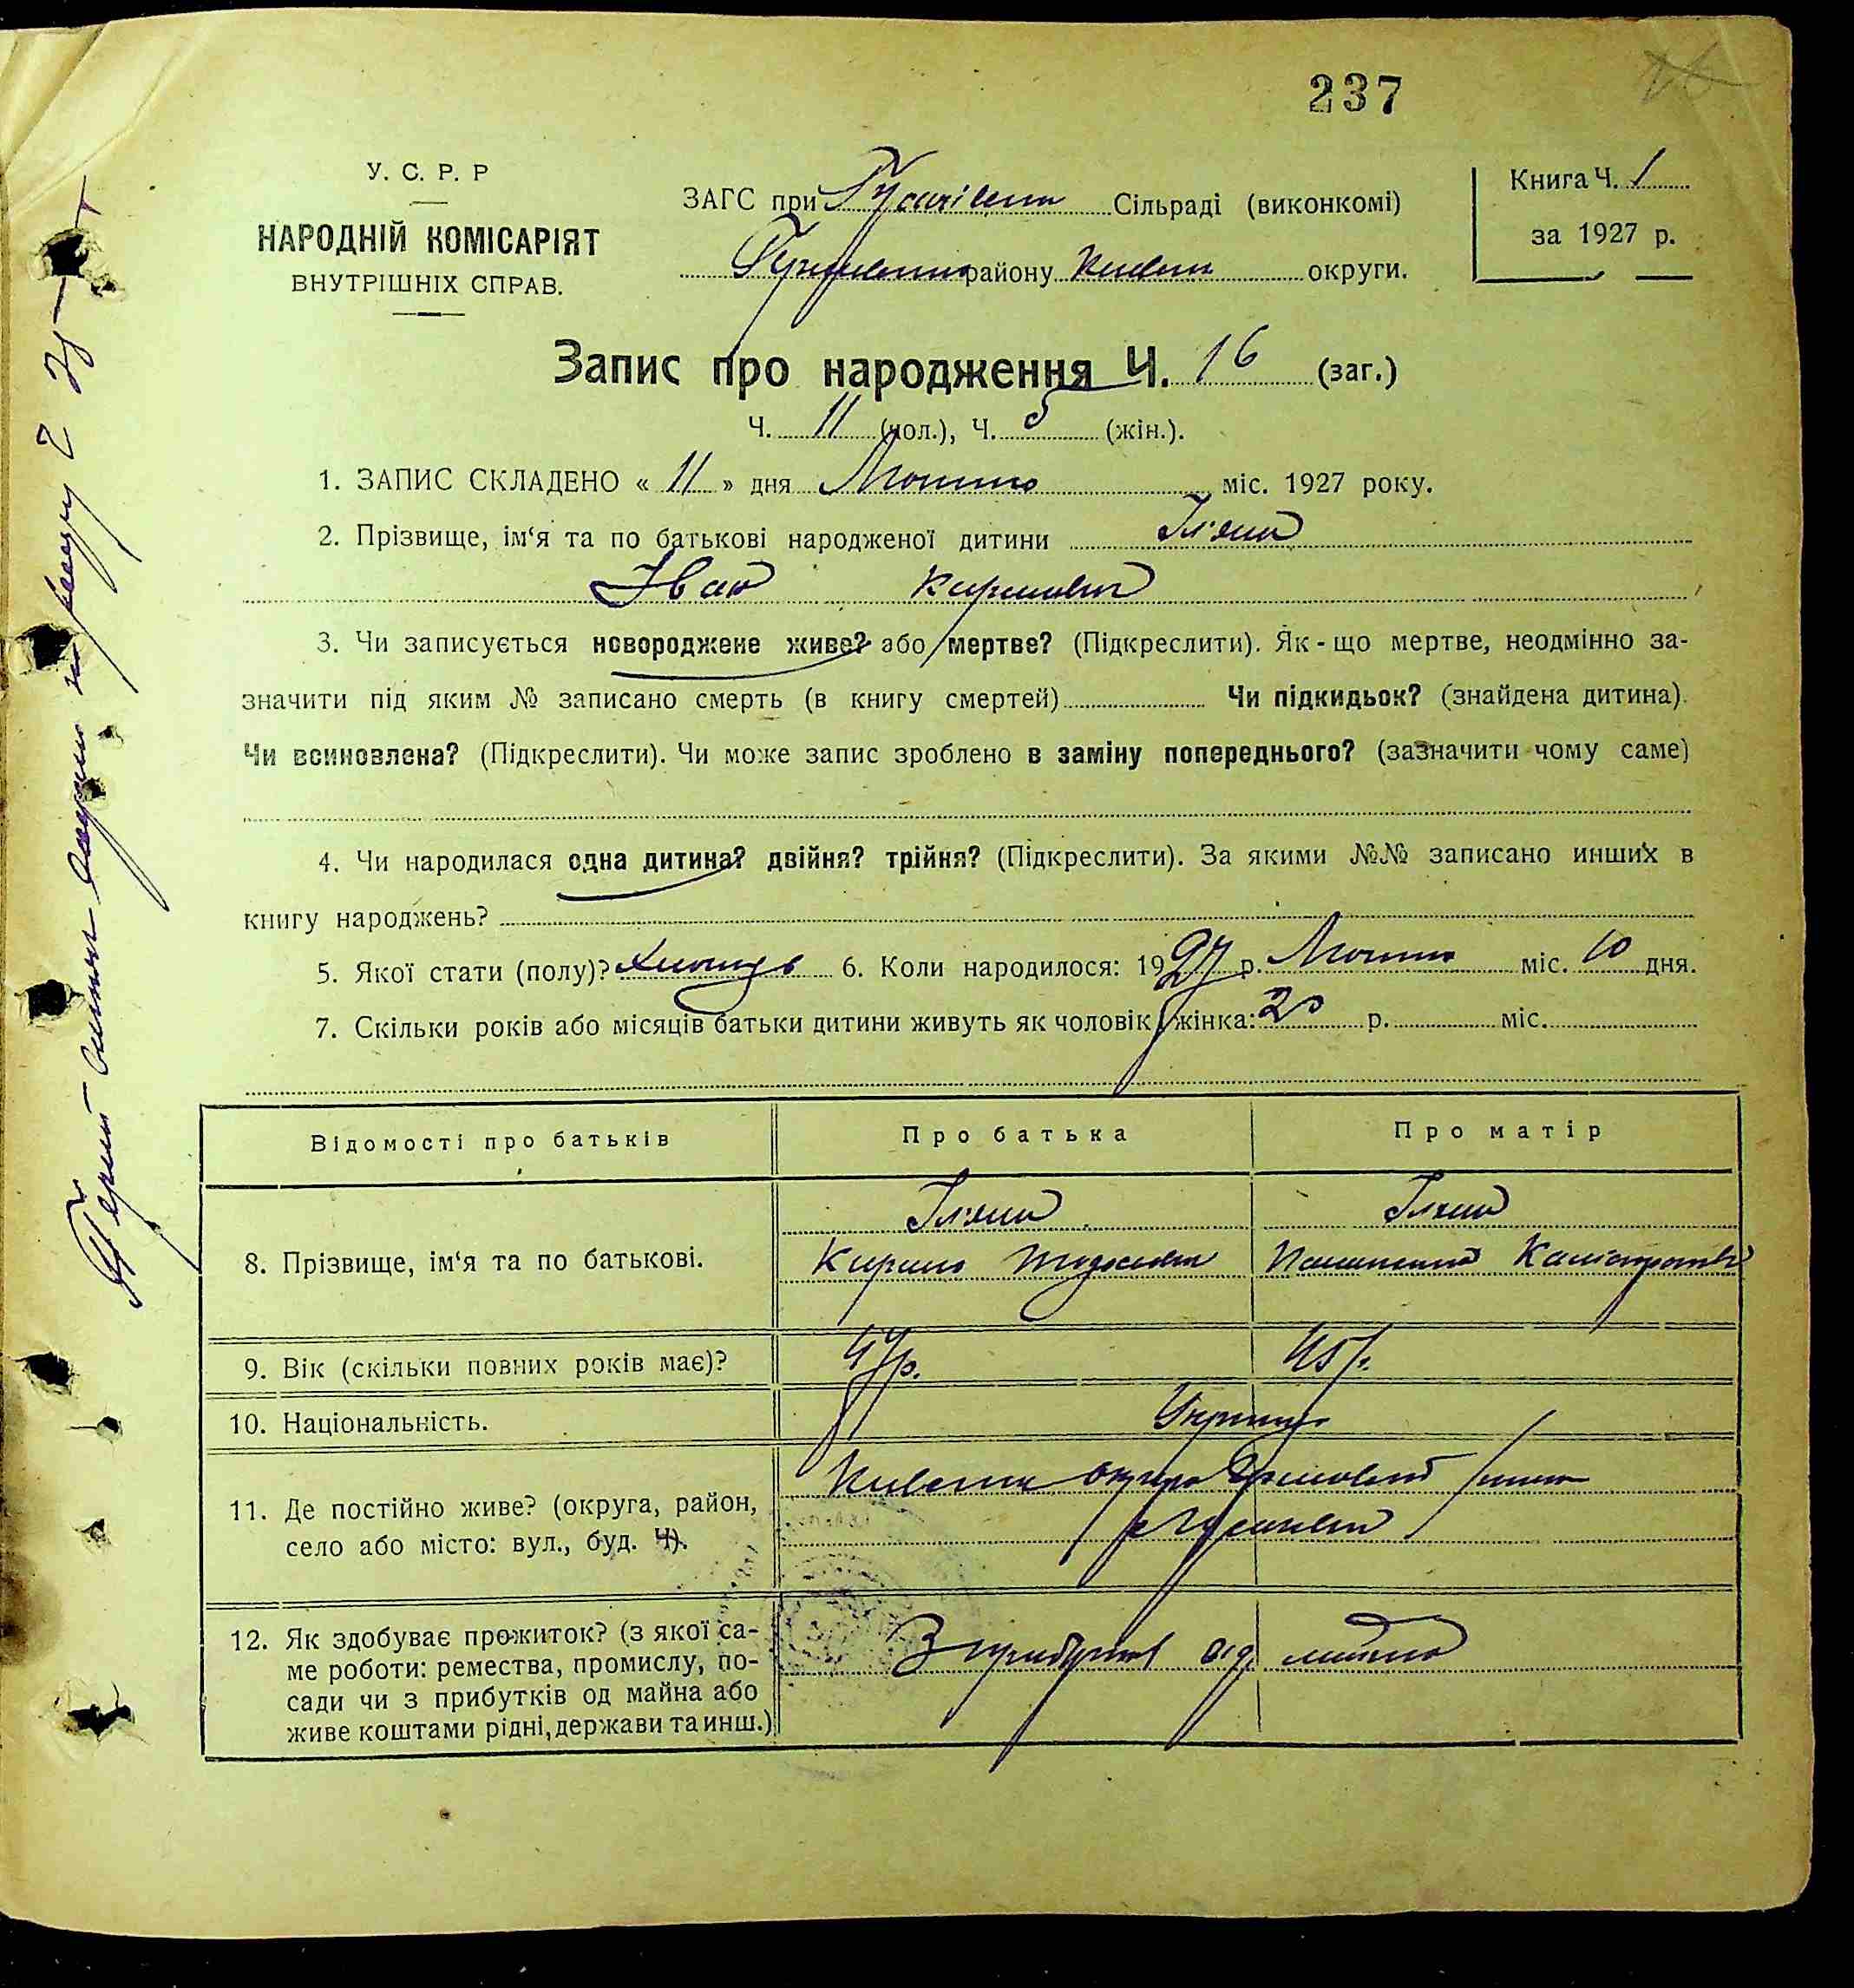 237
У. С. Р. Р
НАРОДНІЙ КОМІСАРІЯТ
ВНУТРІШНІХ СПРАВ.
ЗАГС при Сільраді (виконкомі)
району округи.
Книга Ч. 1
за 1927 р.
Запис про народження Ч. 16 (заг.)
Ч. 11 (чол.), Ч. 5 (жін.).
1. ЗАПИС СКЛАДЕНО « 11 » дня Лютого міс. 1927 року.
2. Прізвище, ім‘я та по батькові народженої дитини Ілʼяш
Іван Кирилович
3. Чи записується новороджене живе? або мертве? (Підкреслити). Як-що мертве, неодмінно за-
значити під яким № записано смерть (в книгу смертей) Чи підкидьок? (знайдена дитина).
Чи всиновлена? (Підкреслити). Чи може запис зроблено в заміну попереднього? (зазначити чому саме)
4. Чи народилася одна дитина? двійня? трійня? (Підкреслити). За якими №№ записано инших в
книгу народжень?
5. Якої стати (полу)? Хлопець 6. Коли народилося: 1927 р. Лютого міс. 10 дня.
7. Скільки років або місяців батьки дитини живуть як чоловік жінка: 20 р. міс.
Відомості про батьків Про батька Про матір
8. Прізвище, ім‘я та по батькові. Ілʼяш Іляш
Кирило Тодосович Калістратів
9. Вік (скільки повних років має)? 47р. 45р.
10. Національність. Українці
11. Де постійно живе? (округа, район,
село або місто: вул., буд. Ч).
Київська округа
12. Як здобуває прожиток? (з якої са-
ме роботи: ремества, промислу, по-
сади чи з прибутків од майна або
живе коштами рідні, держави та инш.)
З прибутків од майна